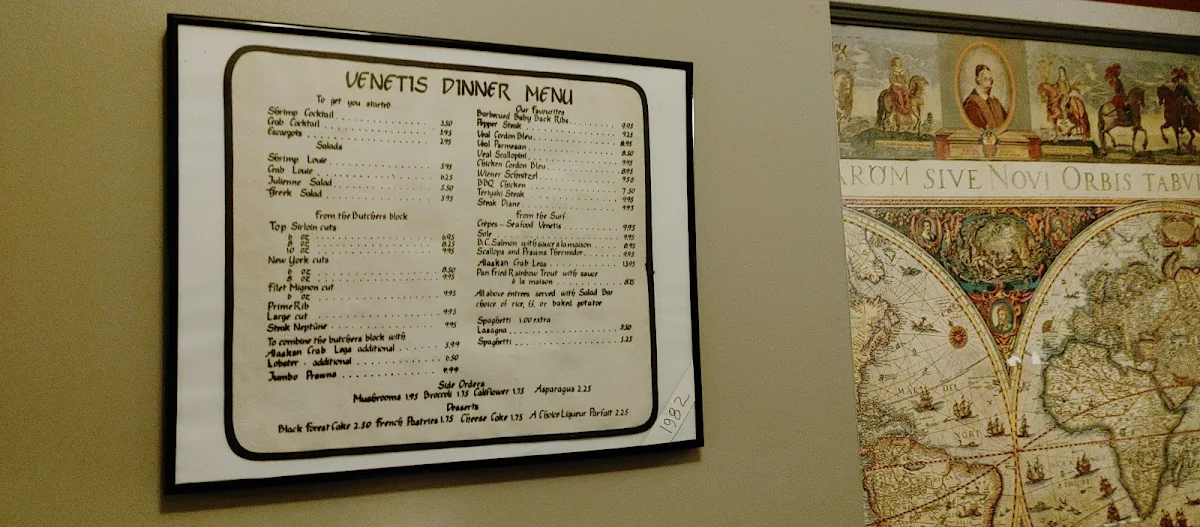 VENETIS DINNER MENU
To get you started
Shrimp Cocktail
Crab Cocktail 5.50
Escargots 5.95
2.95
Salads
Shrimp Louie
Crab Louie 5.95
Julienne Salad 6.25
Greek Salad 5.50
5.95
From the Butchers block
Top Sirloin cuts
6 oz 6.95
8 oz 8.25
10 oz 9.95
New York cuts
6 oz 8.50
8 oz 9.95
Filet Mignon cut
6 oz 9.95
Prime Rib
Large cut 9.95
Steak Neptune 9.95
To combine the butchers block with
Alaskan Crab Legs additional 5.99
Lobster - additional 6.50
Jumbo Prawns 4.99
Our Favourites
Barbecued Baby Back Ribs
Pepper Steak 9.95
Veal Cordon Bleu 9.25
Veal Parmesan 8.95
Veal Scallopini 8.50
Chicken Cordon Bleu 9.95
Wiener Schnitzel 8.95
BBQ Chicken
Teriyaki Steak 7.50
Steak Diane 9.95
9.95
From the Surf
Crêpes - Seafood Venetis 9.95
Sole 9.95
B.C. Salmon with sauce a la maison 8.95
Scallops and Prawns Thermidor 9.95
Alaskan Crab Legs 13.95
Pan Fried Rainbow Trout with sauce
à la maison 8.95
All above entrees served with Salad Bar
choice of rice, ff, or baked potatoe
Spaghetti 1.00 extra
Lasagna 5.50
Spaghetti 5.25
Side Orders
Mushrooms 1.95 Broccoli 1.75 Califlower 1.75 Asparagus 2.25
Desserts
Black Forest Cake 2.50 French Pastries 1.75 Cheese Cake 1.75 A Choice Liqueur Parfait 2.25
1982
SIVE NOVI ORBIS
MAR DEL
NORT